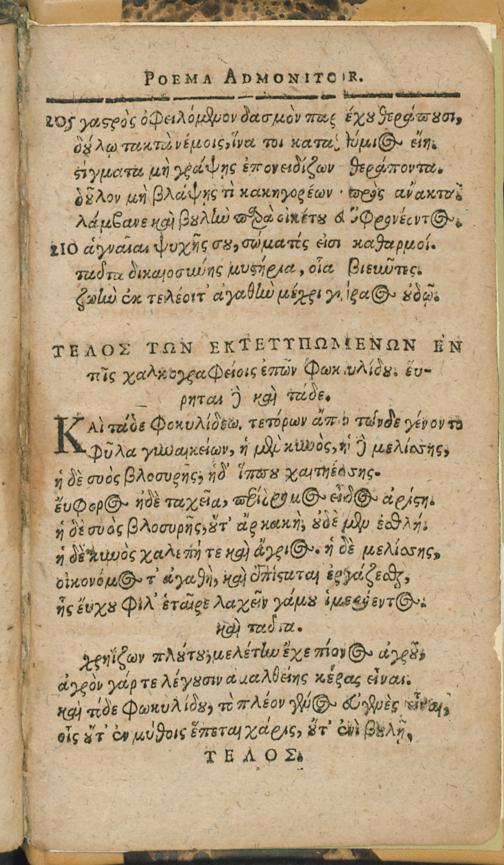 POEMA ADMONITOR.
205 γαςρὸς ὀφειλόμενον δασμὸν παρέχου θεράπουσι,
δούλῳ τακτὰ νέμοις, ἵνα τοι καταθύμιος εἴη.
ςίγματα μὴ γράψης ἐπονειδίζων θεράποντα.
δοῦλον μὴ βλάψης τὶ κακηγορέων πρὸς ἄνακτα.
λάμβανε καὶ βουλὴν παρὰ οἰκέτου εὐφρονέοντος.
210 ἁγνείαι ψυχῆς σου, σώματός εἰσι καθαρμοί.
ταῦτα δικαιοσύνης μυςήρια, οἷα βιεῦντες.
ζωὴν ἐκ τελέοιτ' ἀγαθὴν μέχρι γήραος οὐδῷ.
ΤΕΛΟΣ ΤΩΝ ΕΚΤΕΤΥΠΩΜΕΝΩΝ ΕΝ
τοῖς χαλκογραφείοις ἐπῶν Φωκυλίδου. εὕ-
ρηται δὲ καὶ τάδε.
ΚΑὶ τάδε Φοκυλίδεω. τετόρων ἀπὸ τῶνδε γένοντο
Φῦλα γυναικείων, ἡ μὲν κυνὸς, ἡ δὲ μελίσσης,
ἡ δὲ συὸς βλοσυρῆς, ἡδ' ἵππου χαιτηέσσης.
ἔυφορος ἡδὲ ταχεῖα, περίδρομος εἶδος ἀρίςη.
ἡ δὲ συὸς βλοσυρῆς, οὔτ' ἂρ κακὴ, οὐδὲ μὲν ἐσθλή.
ἡ δὲ κυνὸς χαλεπή τε καὶ ἄγριος. ἡ δὲ μελίσσης,
οἰκονόμος τ' ἀγαθὴ, καὶ ἐπίςαται ἐργάζεσθαι,
ἧς εὔχου φίλ' ἑταῖρε λαχεῖν γάμου ἱμερόεντος.
καὶ ταῦτα.
χρηΐζων πλούτου, μελέτην ἔχε πίονος ἀγροῦ,
ἀγρὸν γάρ τε λέγουσιν ἀμαλθείης κέρας εἶναι.
καὶ τόδε Φωκυλίδου, τὸ πλέον γένος εὐγενὲς εἶναι,
οἷς οὔτ' ἐν μύθοις ἕπεται χάρις, οὔτ' ἐνὶ βουλῇ.
ΤΕΛΟΣ.